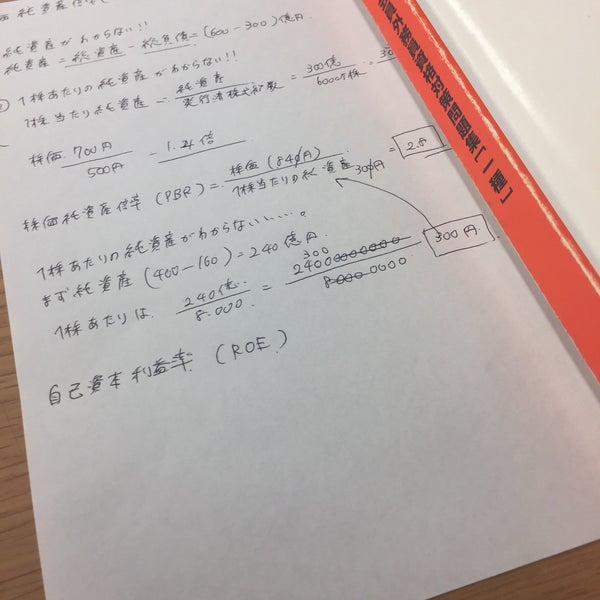 価純資産倍率(
純資産がわからない!!
純資産 = 総資産 - 総負債 = (600-300)億円
1株あたりの純資産がわからない!!
1株当たり純資産 = 純資産 / 発行済株式総数 = 300億 / 6000万株 =
株価 700円 / 500円 = 1.4倍
株価純資産倍率 (PBR) = 株価 (840円) / 1株当たりの純資産 300円 = 2.8
1株あたりの純資産がわからないい、、、。
まず純資産 (400-160) = 240億円
300円
1株あたりは、 240億 / 8.000 = 240000000000 / 80000000
300
自己資本利益率 (ROE)
員資格対策問題集[一種]